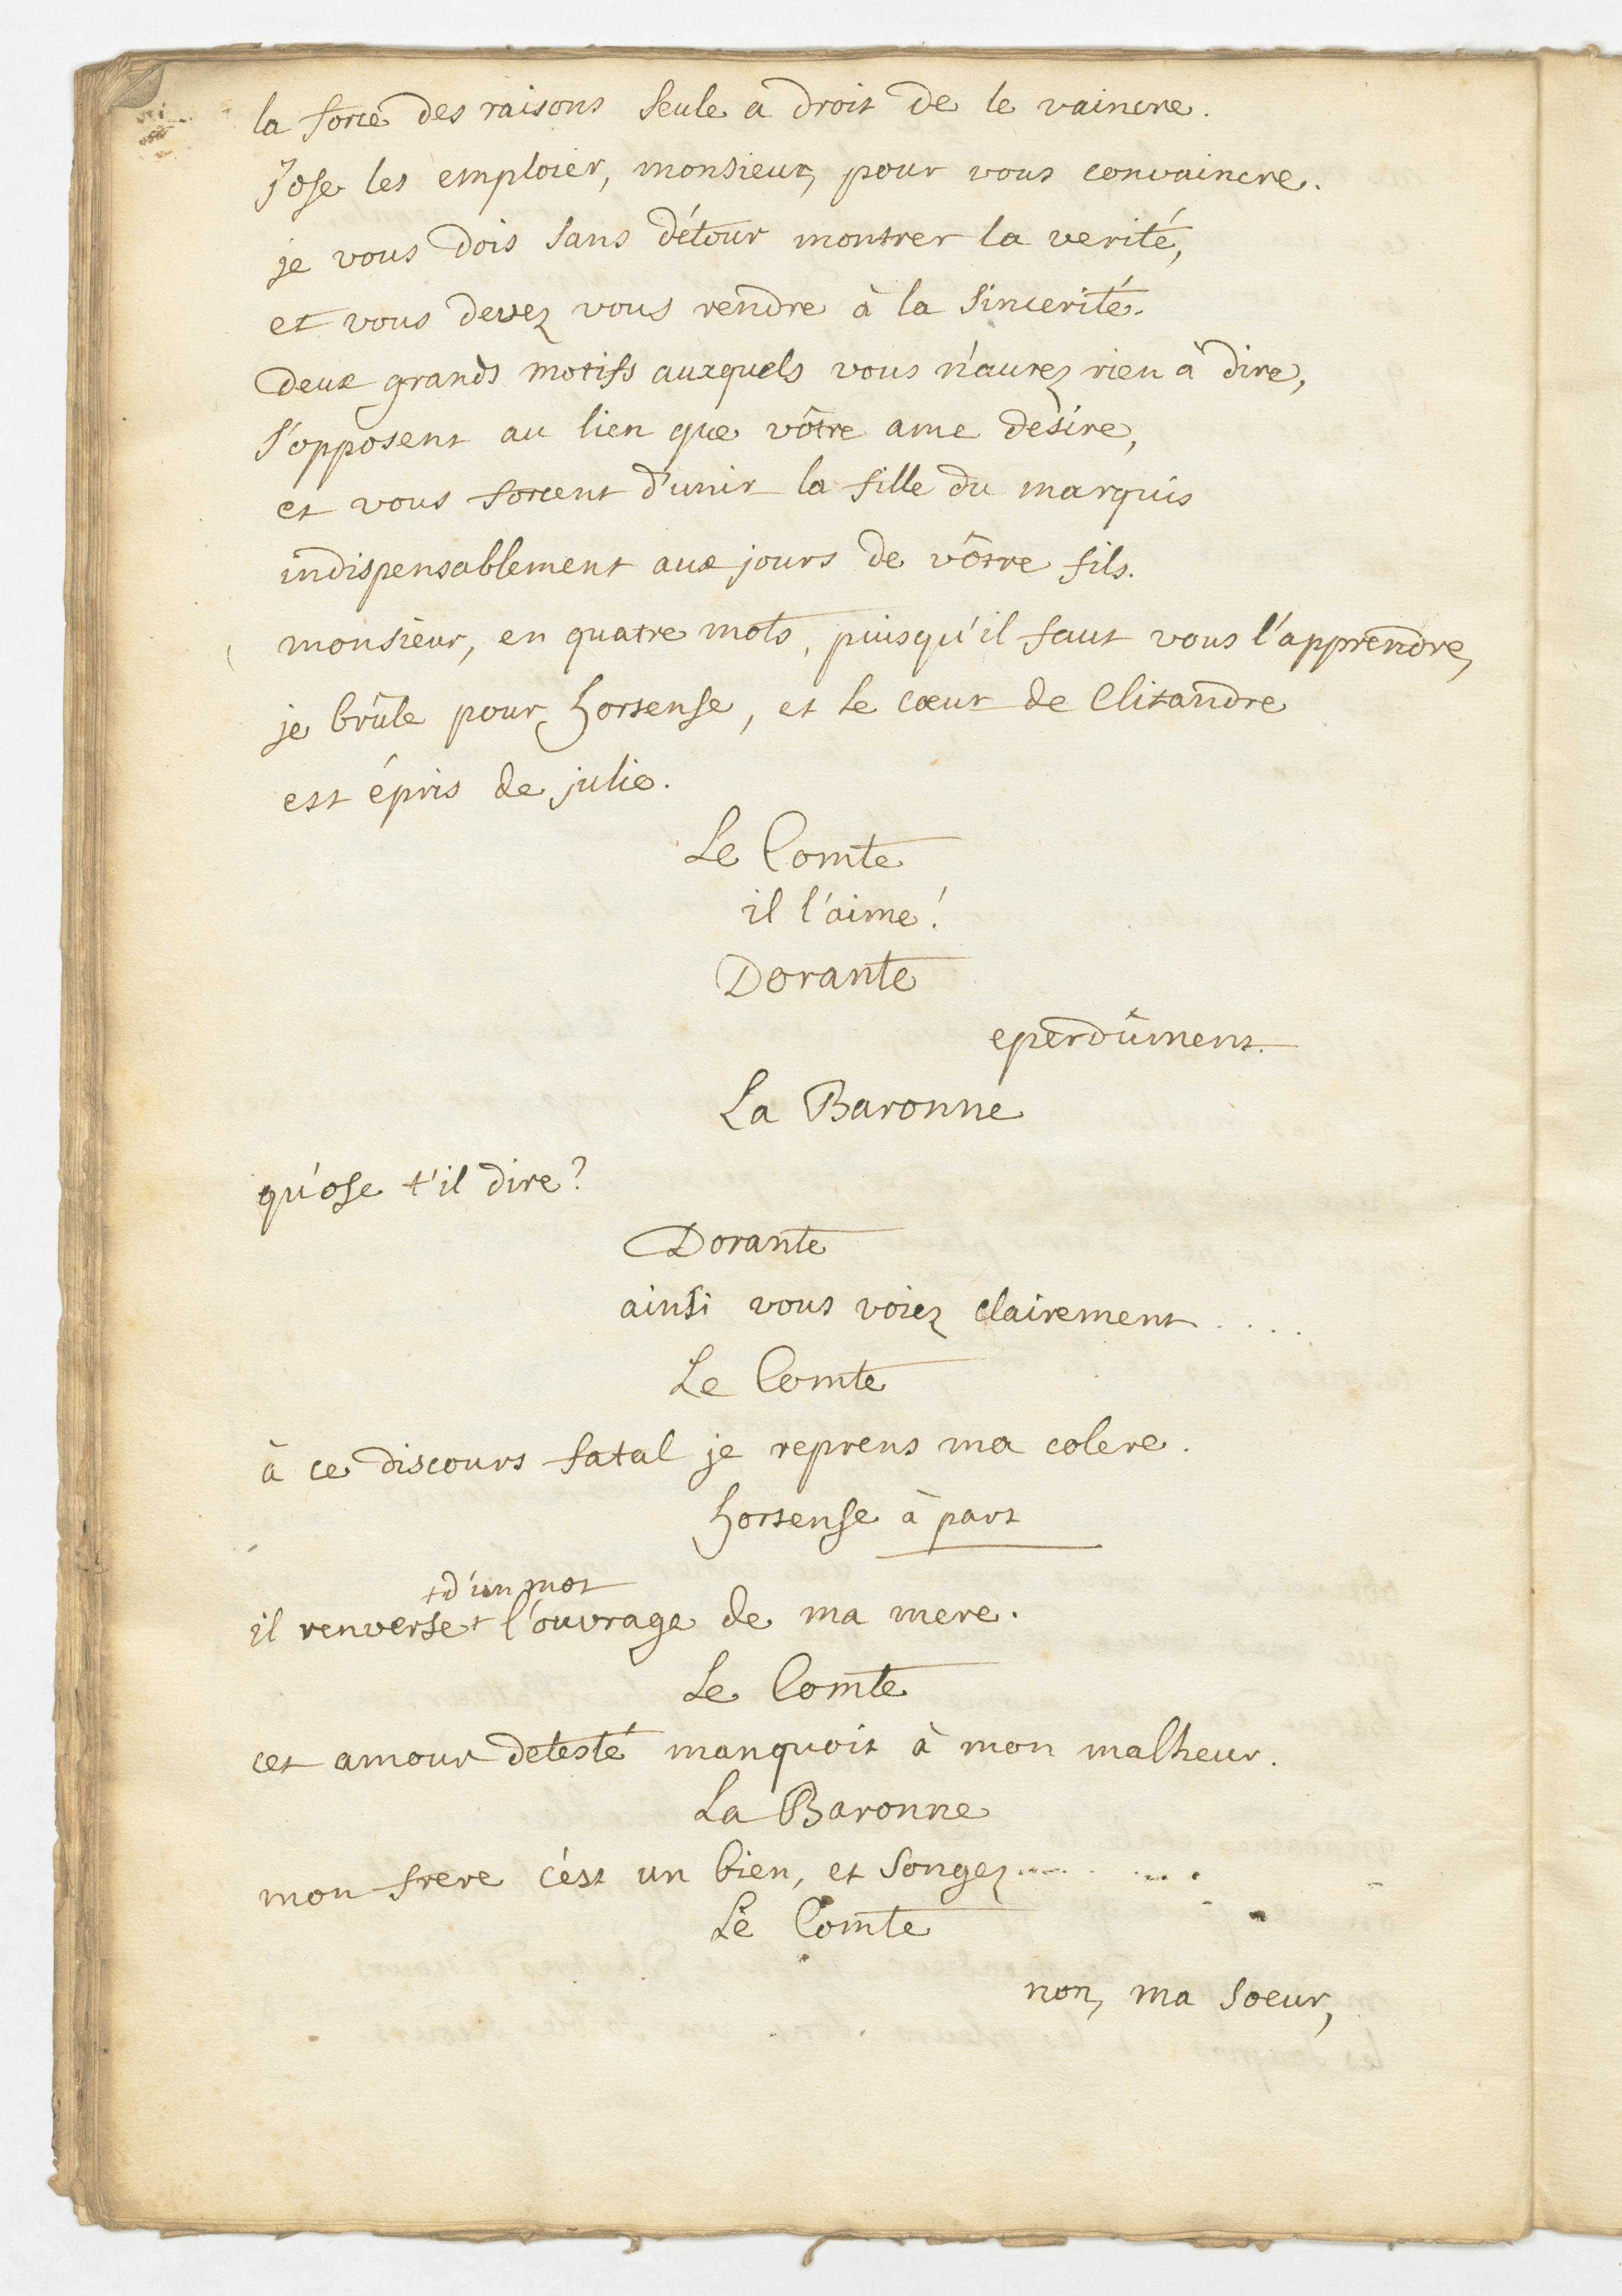 la force des raisons seule a droit de le vaincre.
j'ose les emploier, monsieur, pour vous convaincre.
je vous dois sans détour montrer la verité,
et vous devez vous rendre à la sincerité.
deux grands motifs auxquels vous n'aurez rien à dire,
s'opposent au lien que vôtre ame desire,
et vous forcent d'unir la fille du marquis
indispensablement aux jours de vôtre fils.
monsieur, en quatre mots, puisqu'il faut vous l'apprendre,
je brûle pour hortense, et le cœur de Clitandre
est épris de julie.
Le Comte
il l'aime!
Dorante
eperdûment.
La Baronne
qu'ose t'il dire?
Dorante
ainsi vous voiez clairement....
Le Comte
à ce discours fatal je reprens ma colere.
hortense à part
+d'un mot
il renverse+ l'ouvrage de ma mere.
Le Comte
cet amour detesté manquoit à mon malheur.
La Baronne
mon frere c'est un bien, et songez......
Le Comte
non, ma soeur,